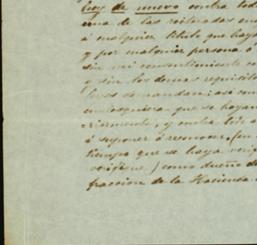 hoy de nuevo contra tod
una de las reiteradas
á cualquier título que haya
y por cualquier persona ó
sin mi consentimiento
y sin los demas requisito
leyes se mandan; asi com
cualesquiera que se hayan
oriormente, y contra los
á suponer ó reconocer, (en
tiempo que se haya veri
verifique,) como dueño de
fraccion de la Hacienda